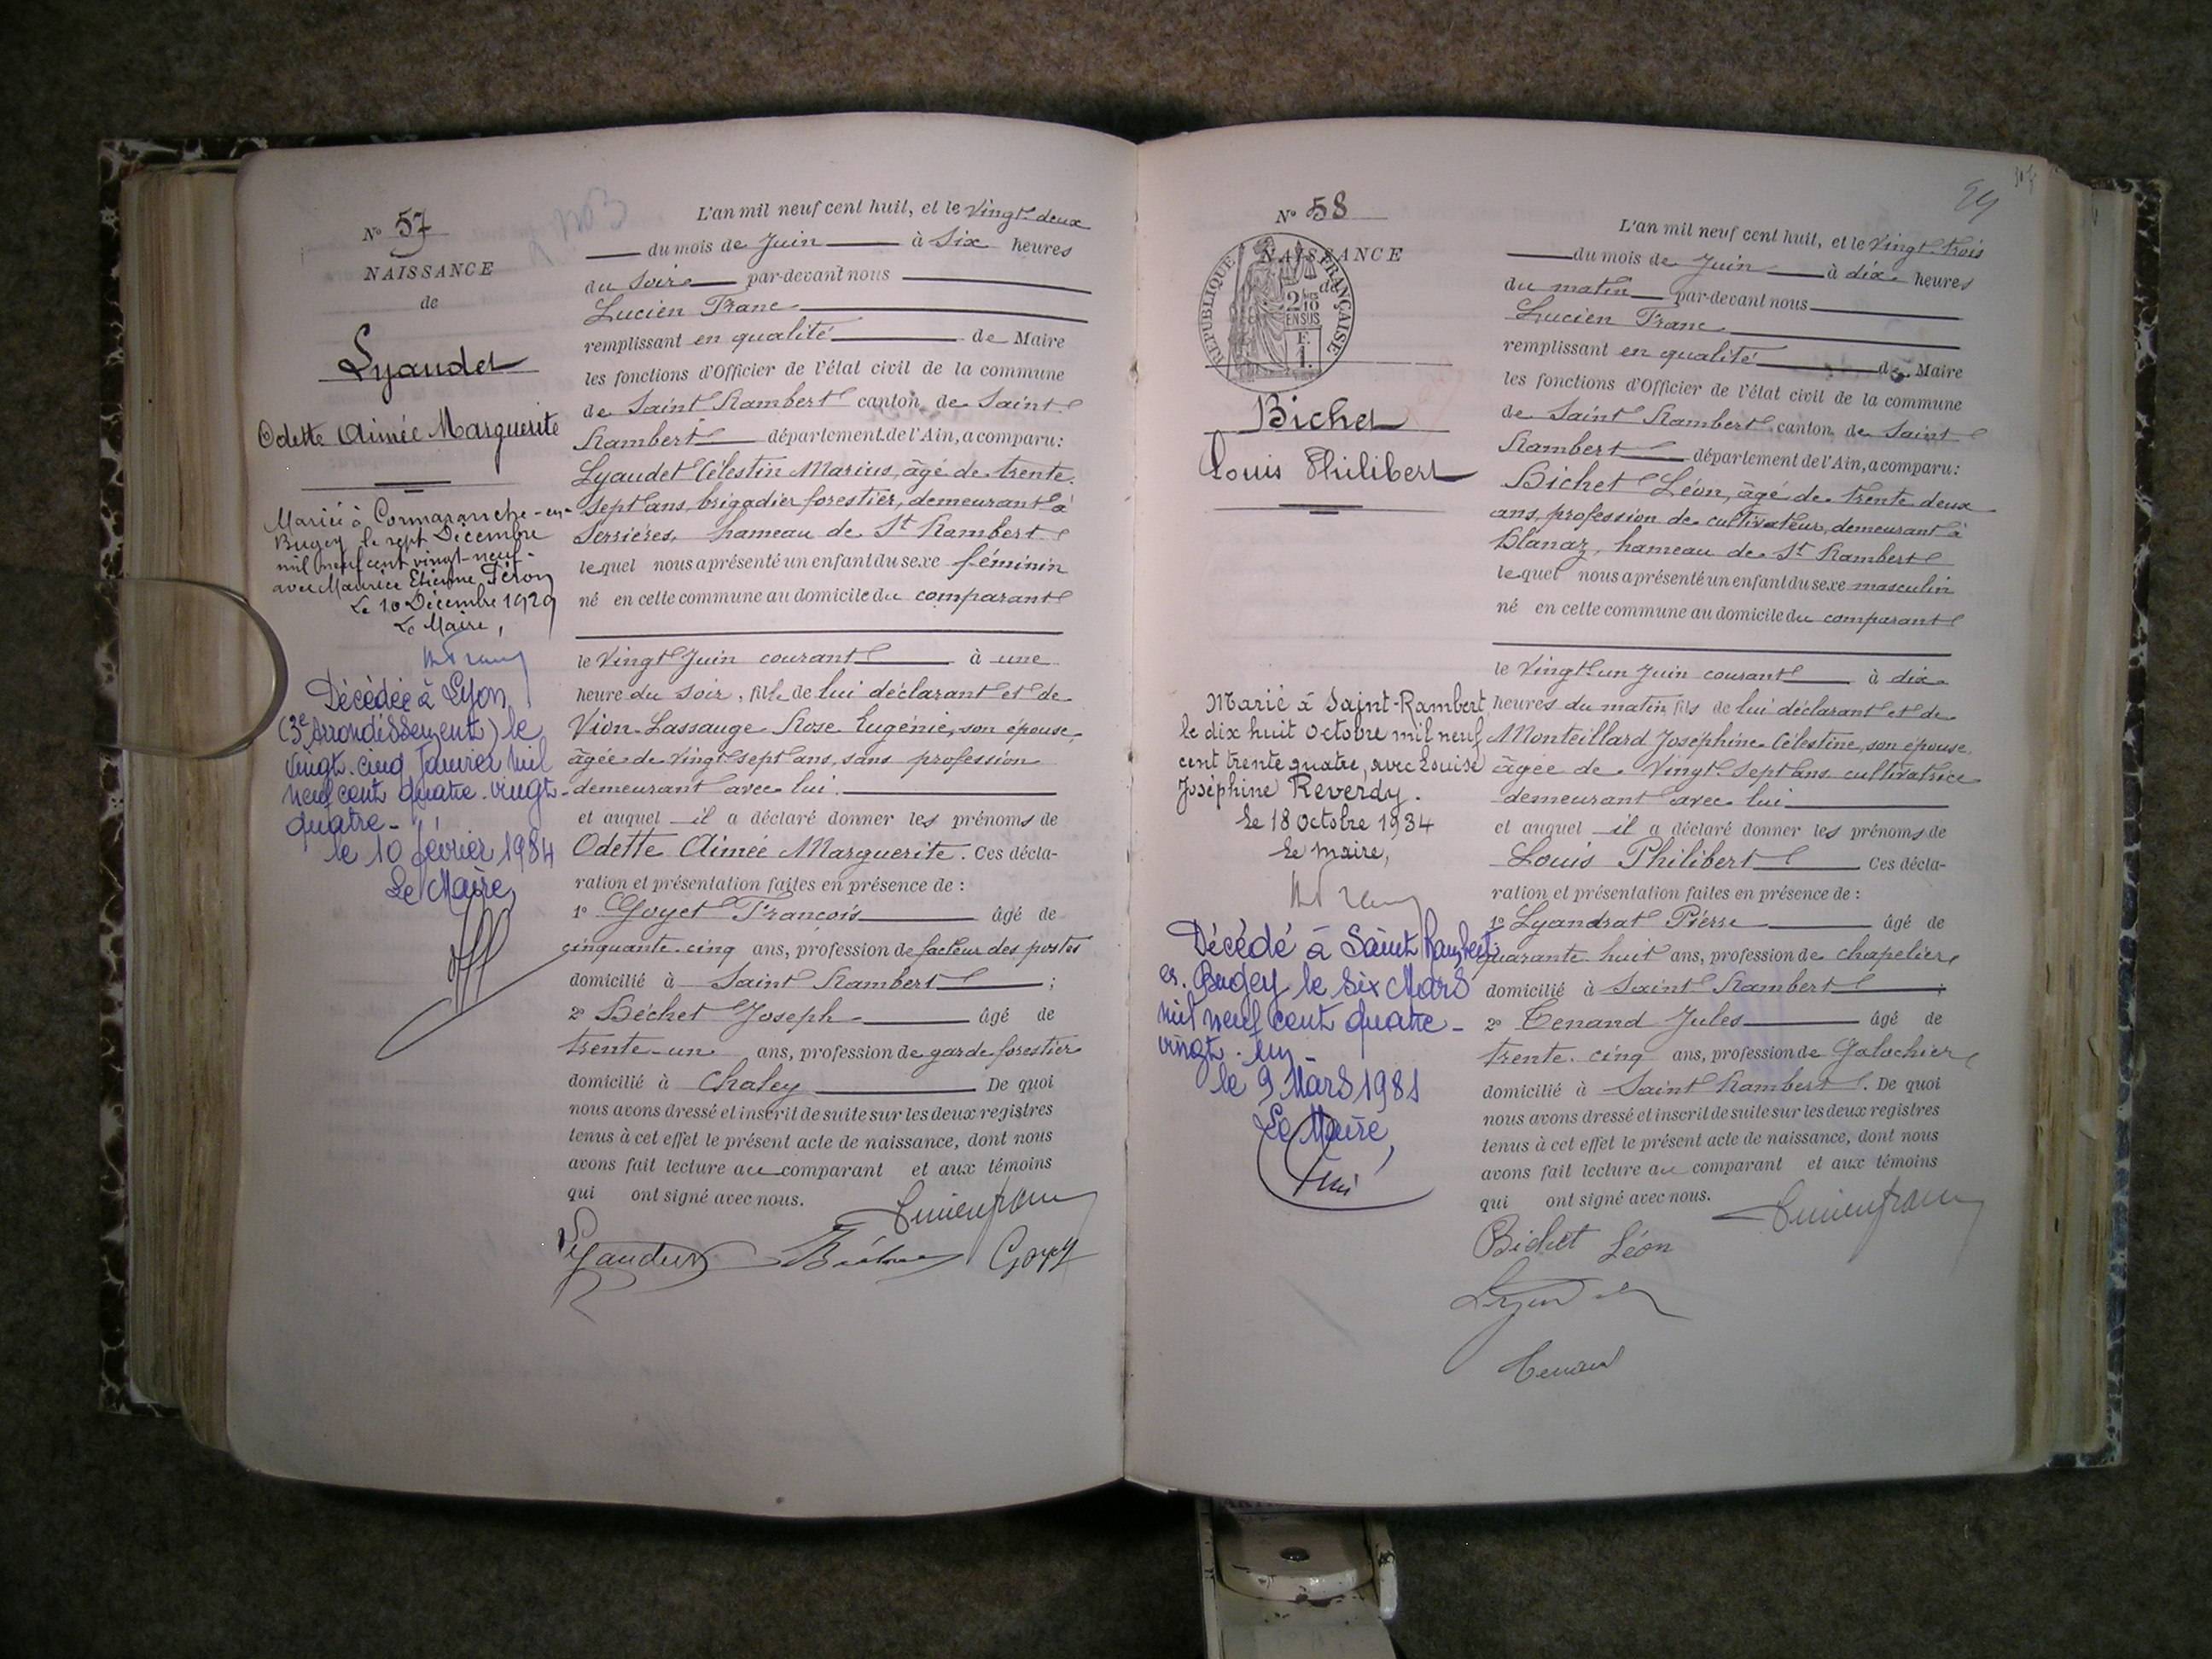 N° 57
NAISSANCE
de
Lyaudet
Odette Aimée Marguerite
Mariée à Cormaranche-en-
Bugey le sept Décembre
mil neuf cent vingt-neuf
avec Maurice Etienne Péron
Le 10 Décembre 1929
Le Maire,
Décédée à Lyon
(3e Arrondissement) le
vingt-cinq Janvier mil
neuf cent quatre-vingt-
quatre-
le 10 février 1984
Le Maire,
L'an mil neuf cent huit, et le Vingt-deux
du mois de Juin à Six heures
du soir par-devant nous
Lucien Franc
remplissant en qualité de Maire
les fonctions d'Officier de l'état civil de la commune
de Saint Rambert canton de Saint
Rambert département de l'Ain, a comparu:
Lyaudet Célestin Marius, âgé de trente-
sept ans, brigadier forestier, demeurant à
Serrières, hameau de St Rambert
lequel nous a présenté un enfant du sexe féminin
né en cette commune au domicile du comparant
le Vingt Juin courant à une
heure du soir, fille de lui déclarant et de
Vion-Lassauge Rose Eugénie, son épouse,
âgée de vingt sept ans, sans profession
demeurant avec lui.
et auquel il a déclaré donner les prénoms de
Odette Aimée Marguerite. Ces décla-
ration et présentation faites en présence de :
1° Goyet François âgé de
cinquante-cinq ans, profession de facteur des postes
domicilié à Saint Rambert ;
2° Béchet Joseph âgé de
trente-un ans, profession de garde forestier
domicilié à Chaley De quoi
nous avons dressé et inscrit de suite sur les deux registres
tenus à cet effet le présent acte de naissance, dont nous
avons fait lecture au comparant et aux témoins
qui ont signé avec nous.
Lucien Franc
Lyaudet Goyet
N° 58
NAISSANCE
de
RÉPUBLIQUE FRANÇAISE
2/10
EN SUS
F.
1.
Bichet
Louis Philibert
Marié à Saint-Rambert
le dix huit Octobre mil neuf
cent trente quatre, avec Louise
Joséphine Reverdy.
Le 18 Octobre 1934
Le maire,
Décédé à Saint Rambert
en Bugey le six Mars
mil neuf cent quatre-
vingt-un-
le 9 Mars 1981
Le Maire,
L'an mil neuf cent huit, et le Vingt-trois
du mois de Juin à dix heures
du matin par-devant nous
Lucien Franc
remplissant en qualité de Maire
les fonctions d'Officier de l'état civil de la commune
de Saint Rambert, canton de Saint
Rambert département de l'Ain, a comparu:
Bichet Léon, âgé de trente deux
ans, profession de cultivateur, demeurant à
Blanaz, hameau de St Rambert
lequel nous a présenté un enfant du sexe masculin
né en cette commune au domicile du comparant
le Vingt-un Juin courant à dix
heures du matin, fils de lui déclarant et de
Monteillard Joséphine Célestine, son épouse,
âgée de Vingt-sept ans cultivatrice
demeurant avec lui
et auquel il a déclaré donner les prénoms de
Louis Philibert Ces décla-
ration et présentation faites en présence de :
1° Lyandrat Pierre âgé de
quarante huit ans, profession de chapelier
domicilié à Saint Rambert ;
2° Tenand Jules âgé de
trente-cinq ans, profession de Galochier
domicilié à Saint Rambert. De quoi
nous avons dressé et inscrit de suite sur les deux registres
tenus à cet effet le présent acte de naissance, dont nous
avons fait lecture au comparant et aux témoins
qui ont signé avec nous.
Lucien Franc
Bichet Léon
Tenand